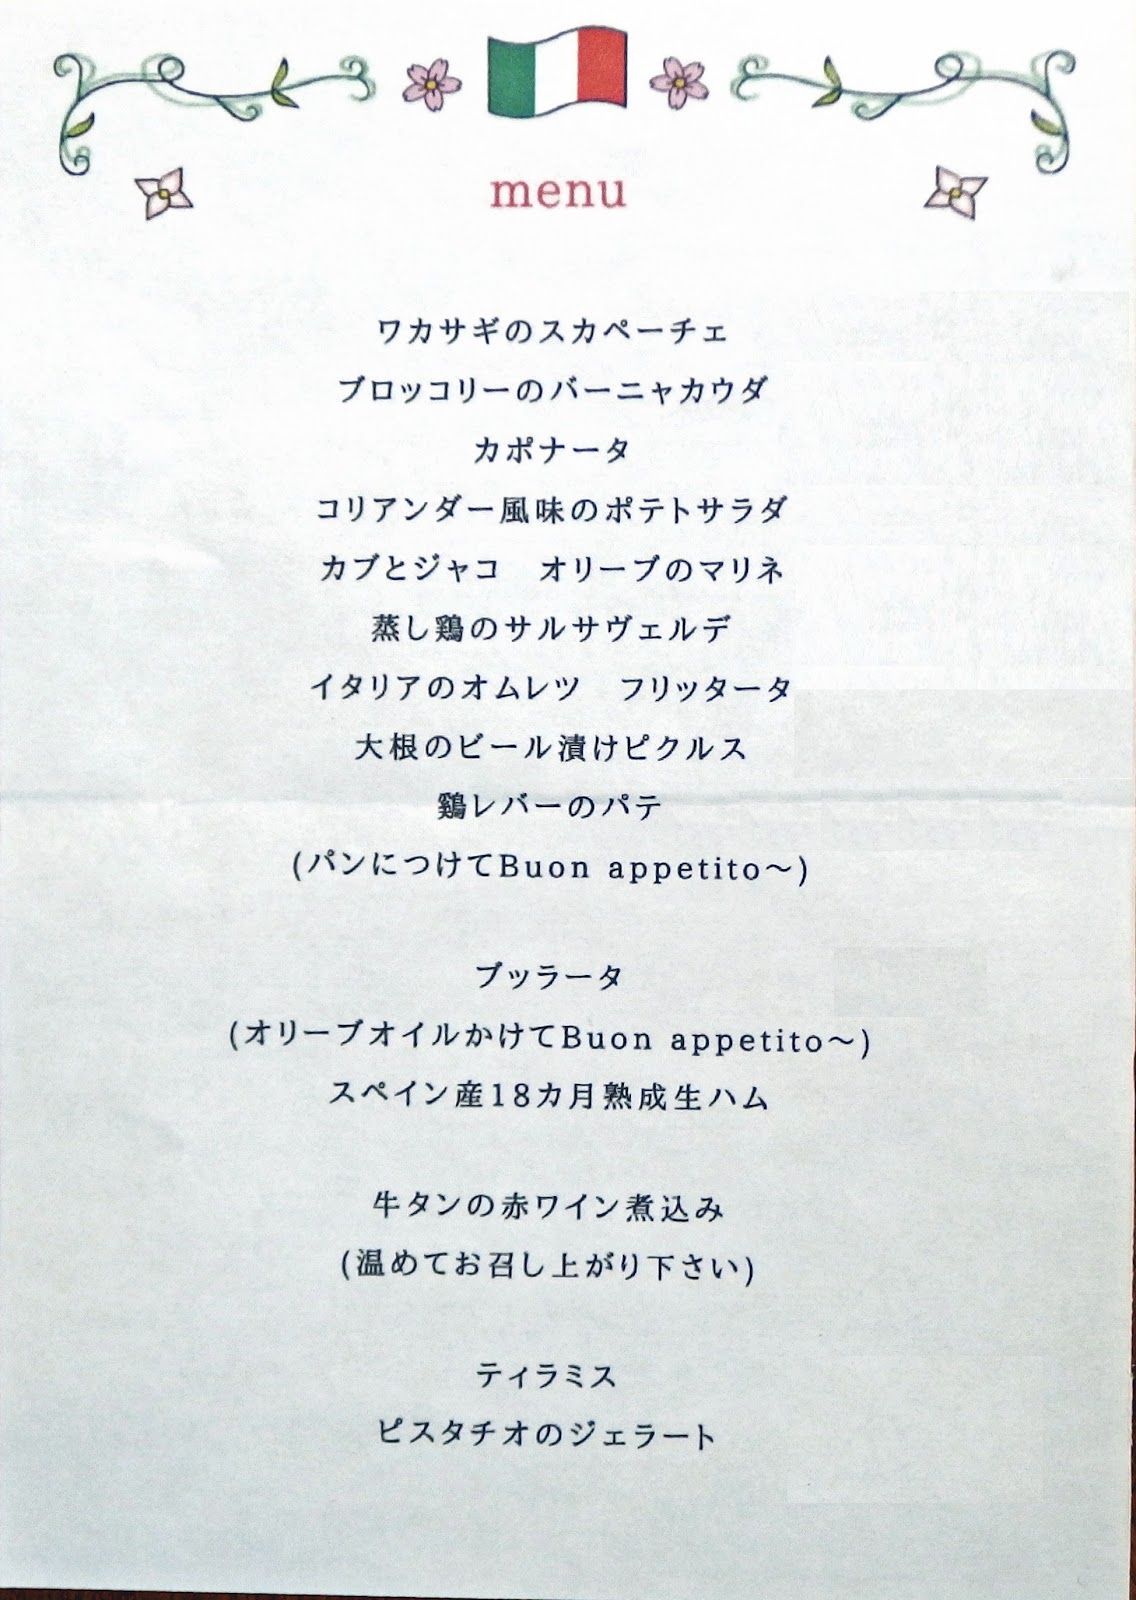 menu
ワカサギのスカペーチェ
ブロッコリーのバーニャカウダ
カポナータ
コリアンダー風味のポテトサラダ
カブとジャコ　オリーブのマリネ
蒸し鶏のサルサヴェルデ
イタリアのオムレツ　フリッタータ
大根のビール漬けピクルス
鶏レバーのパテ
(パンにつけてBuon appetito〜)
ブッラータ
(オリーブオイルかけてBuon appetito〜)
スペイン産18カ月熟成生ハム
牛タンの赤ワイン煮込み
(温めてお召し上がり下さい)
ティラミス
ピスタチオのジェラート